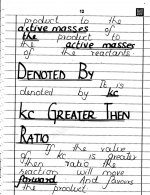 12
product to the
active masses of
the product to
the active masses
of the reactants.
DENOTED BY
It is
denoted by kc
KC GREATER THEN
RATIO
If the value
of kc is greater
then ratio the
reaction will move
forward And favours
the product